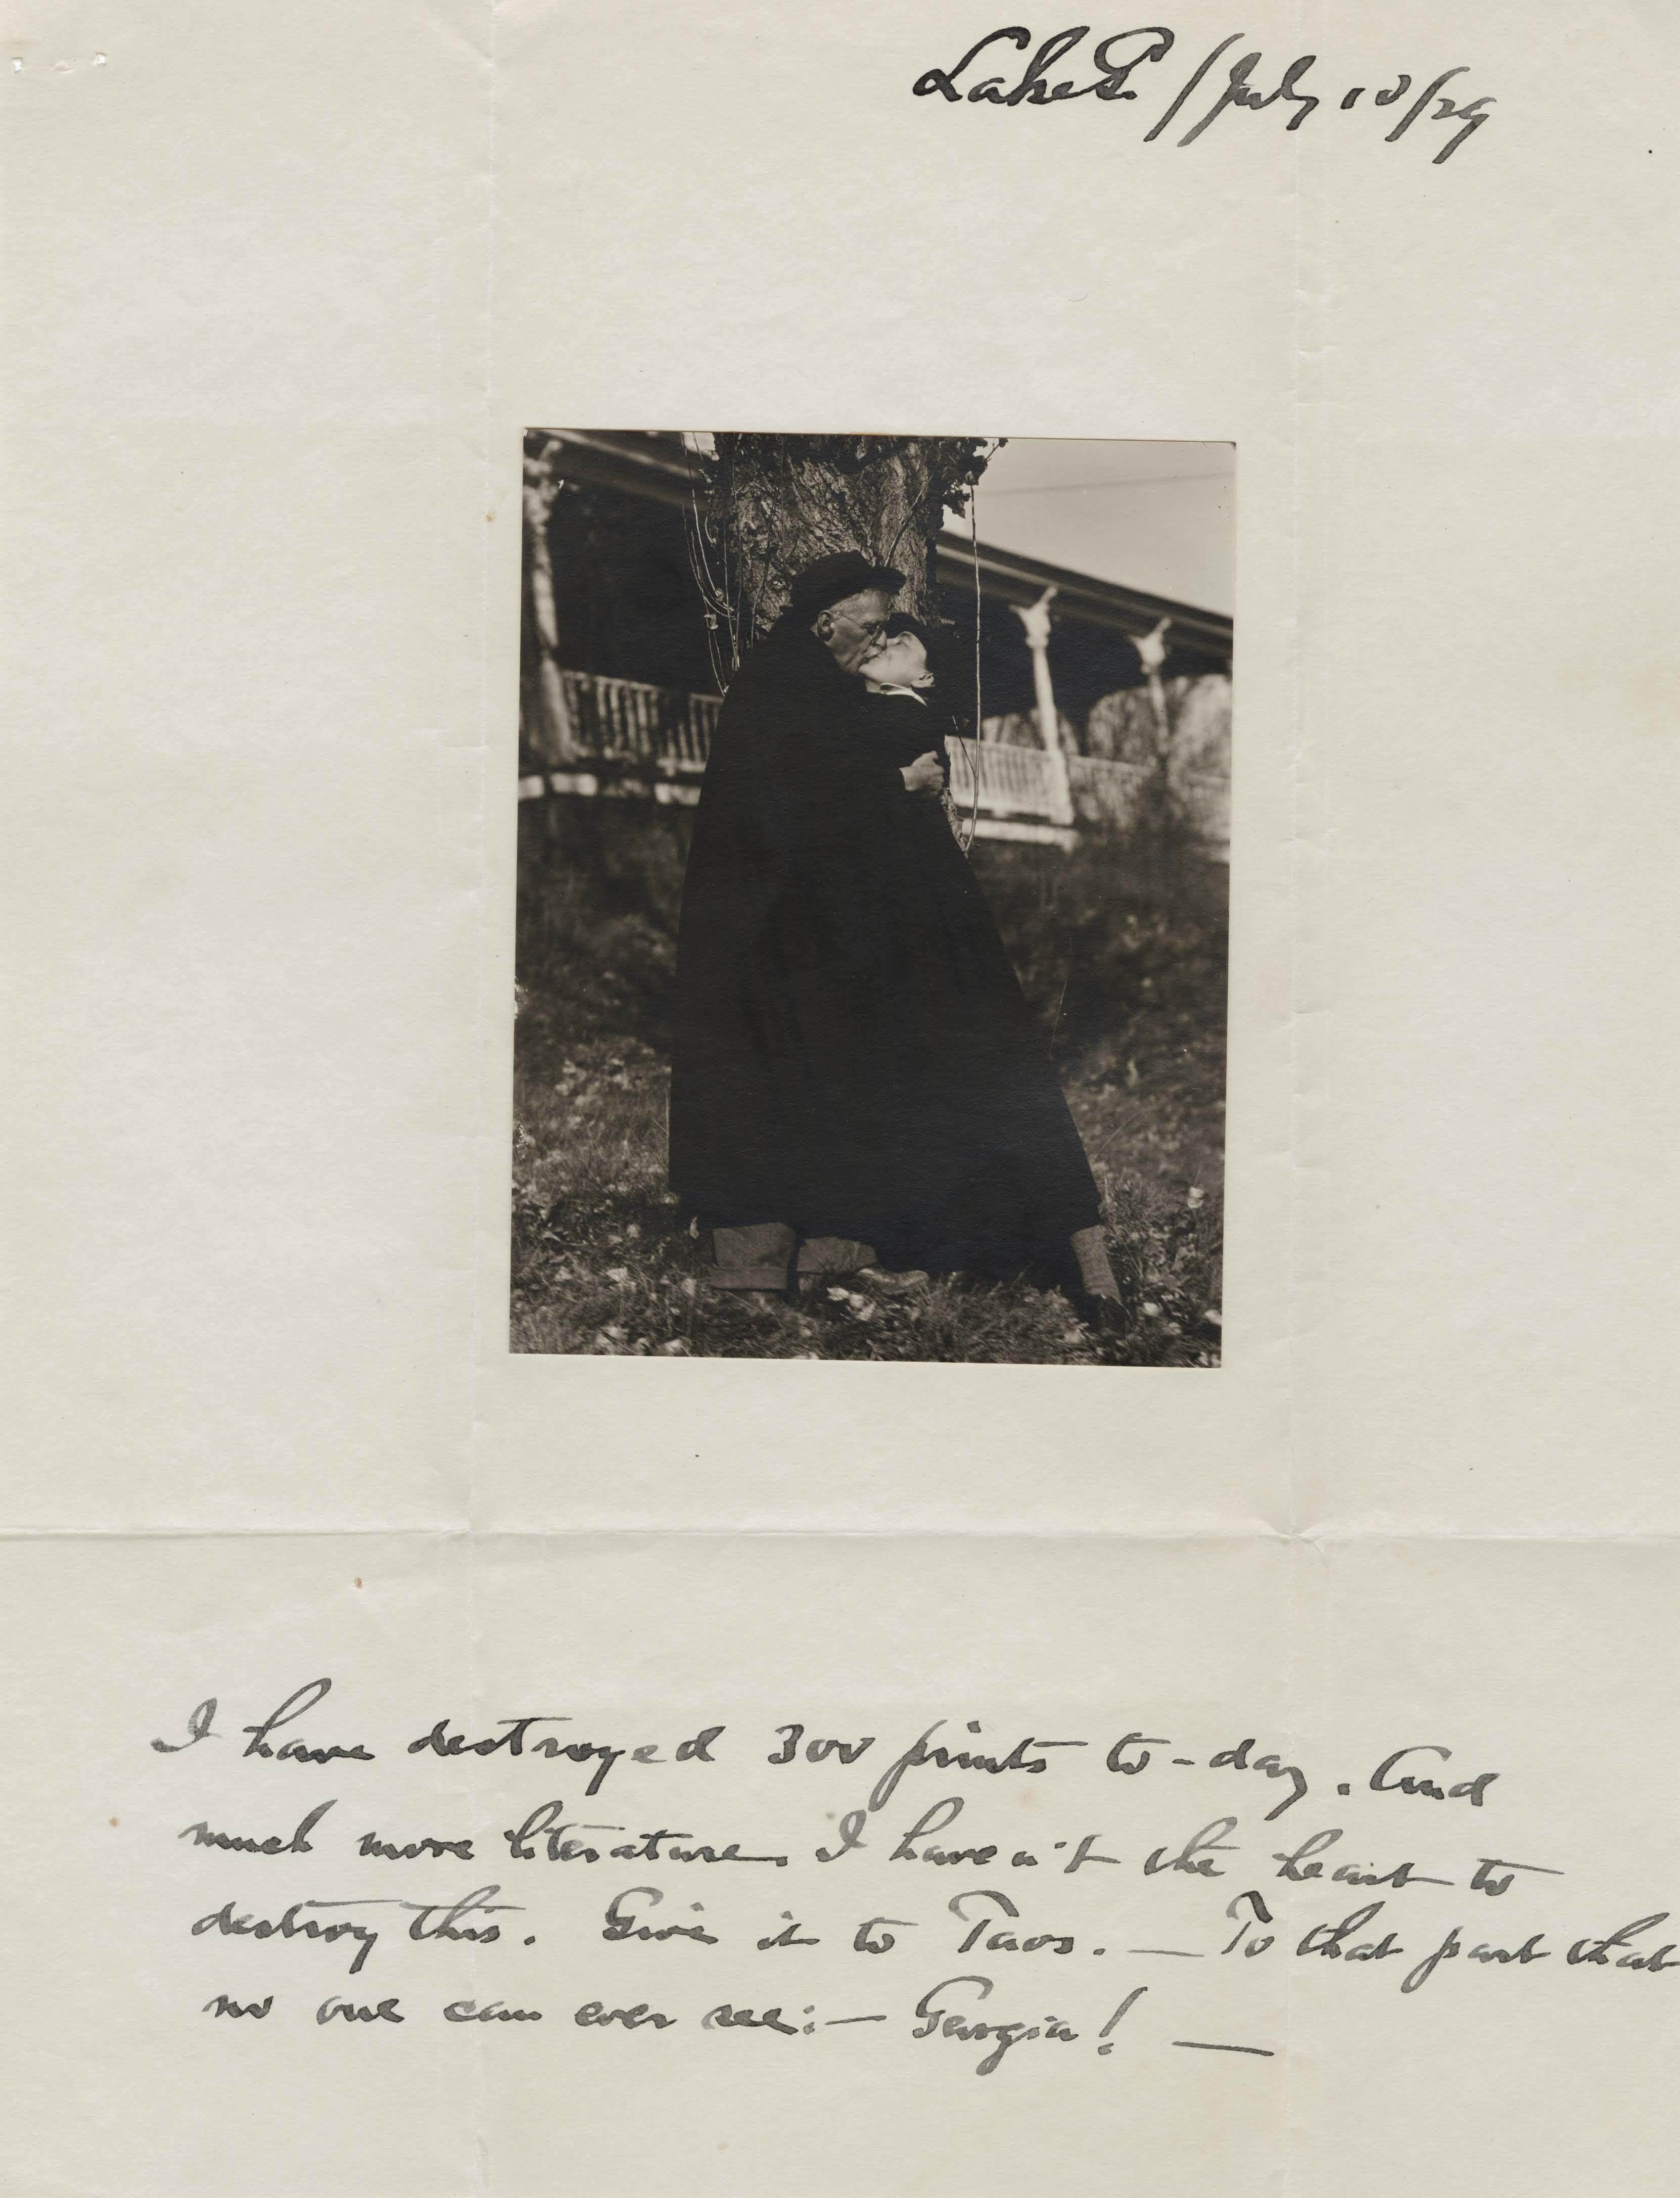 Lake G. / July 10/29
I have destroyed 300 prints to-day. And
much more literature. I haven't the heart to
destroy this. Give it to Taos. — To that part that
no one can ever see: — Georgia! —